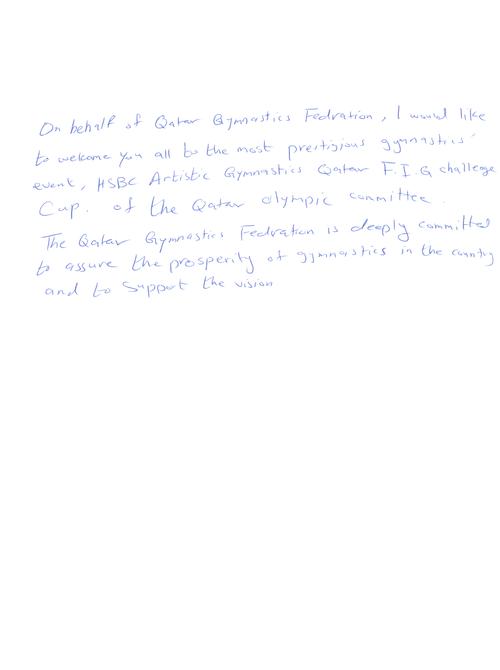 On behalf of Qatar Gymnastics Fedration, I would like
to welcome you all to the most preitigious gymnastics'
event, HSBC Artistic Gymnastics Qatar F.I.G challenge
Cup. of the Qatar olympic committee.
The Qatar Gymnastics Fedration is deeply committed
to assure the prosperity of gymnastics in the country
and to Support the vision